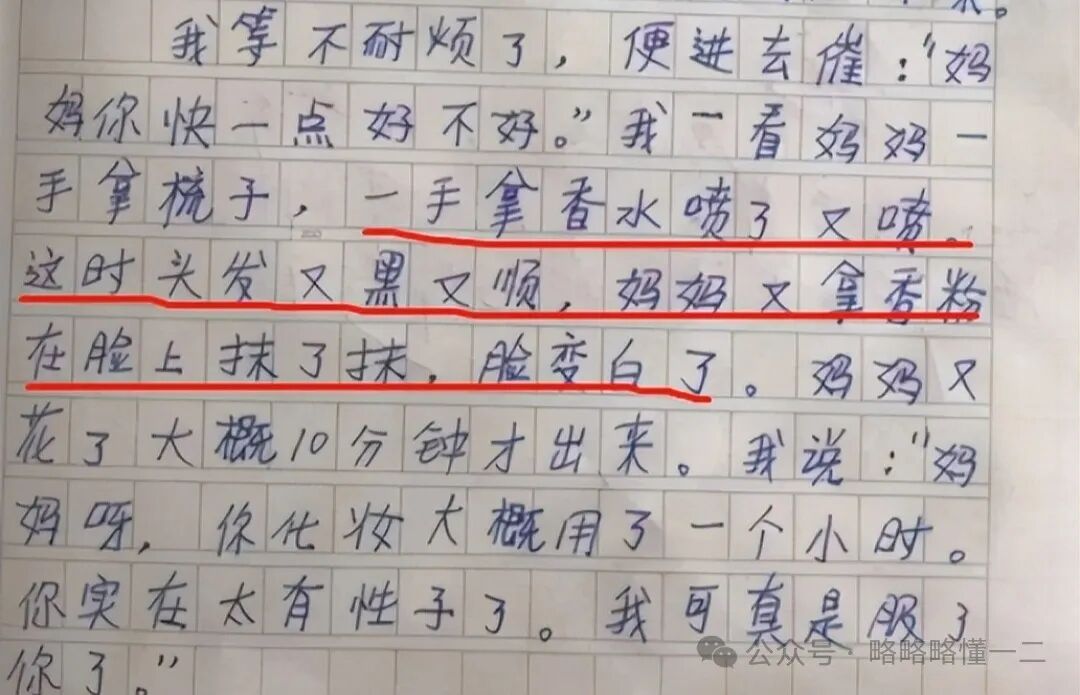 我等不耐烦了，便进去催："妈
妈你快一点好不好。"我一看妈妈一
手拿梳子，一手拿香水喷了又喷。
这时头发又黑又顺，妈妈又拿香粉
在脸上抹了抹，脸变白了。妈妈又
花了大概10分钟才出来。我说："妈
妈呀，你化妆大概用了一个小时。
你实在太有性子了。我可真是服了
你了。"
公众号·略略略懂一二